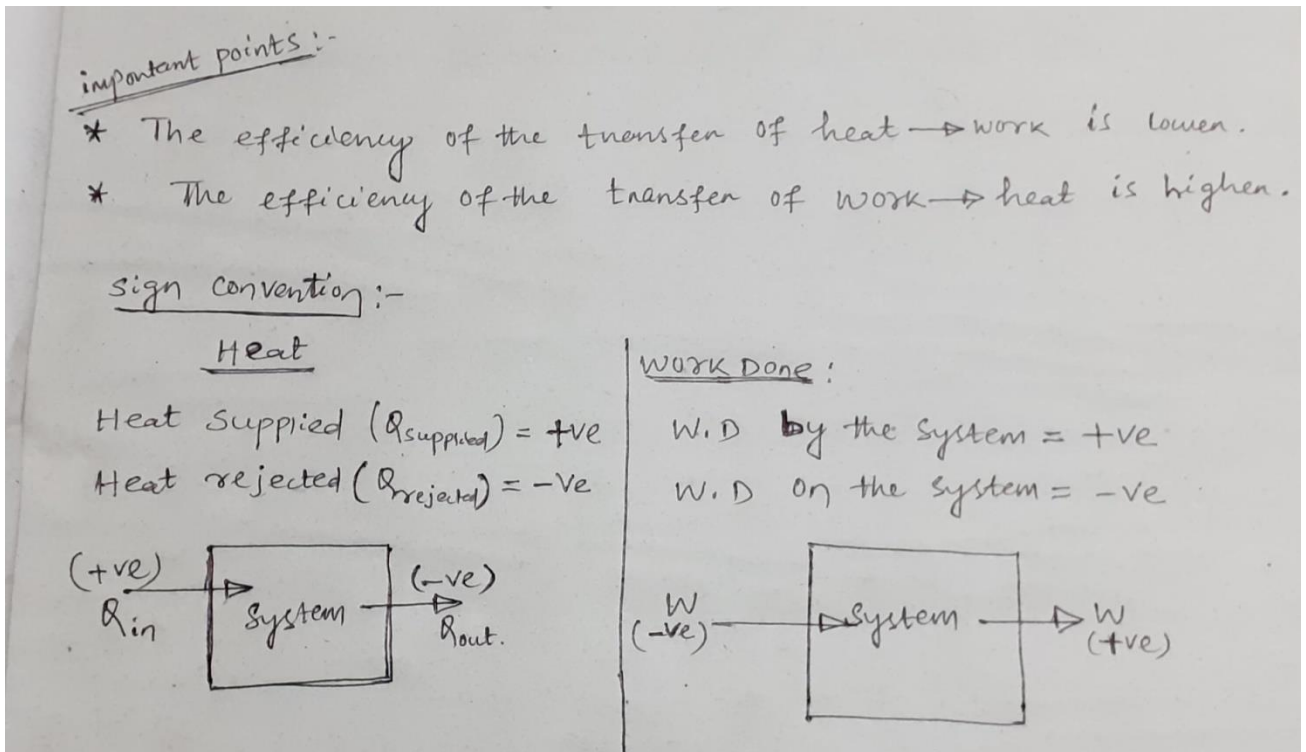 important points :-
* The efficiency of the transfer of heat → work is lower.
* The efficiency of the transfer of work → heat is higher.
Sign convention :-
Heat
Heat supplied (Qsupplied) = +ve
Heat rejected (Qrejected) = -ve
(+ve)
Qin
System
(-ve)
Qout.
Work Done :
W.D by the system = +ve
W.D on the system = -ve
W
(-ve)
System
W
(+ve)